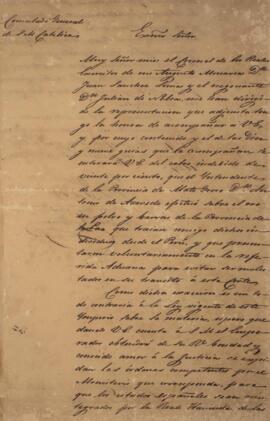 Consulado General
de S. M. Catolica
Exmo. Señor
Muy Señor mio: el Coronel de los Reales
Exercitos de mi Augusto Monarca Dn.
Juan Sanchez Lima y el
Dn. Julian de me han dirigido
la representacion que adjunta tengo
la honra de acompañar a V. E.
y por cuyo contenido y el de las
y nueve guias que la acompañan se
enterará V. E. del cobro indebido de
veinte por ciento, que el Yntendente
de la Provincia de Mato Groso Dn.
de Acevedo efectuó sobre el oro
en polvo y barras de la Provincia de
que traian
desde el Perú, y que
voluntariamente en la refe-
rida Aduana para evitar
en su transito á esta
Como dicha exaccion es en to-
do contraria á la Ley vigente de este
Ymperio sobre la materia, espero que
dando V. E. cuenta á S. M. el Empe-
rador obtendré de su Rl. bondad y
conocido amor á la Justicia se expi-
dan las ordenes competentes por el
Ministerio que corresponda, para
que los citados Españoles sean rein-
tegrados por la Real Hacienda de las